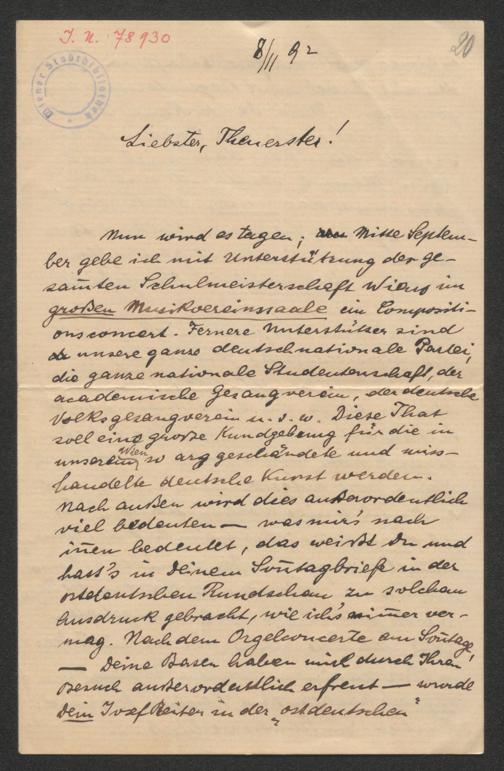 I. N. 78930
8/II 92
20
Wiener Stadtbibliothek
Liebster, Theuerster!
Nun wird es tagen; Mitte Septem-
ber gebe ich mit Unterstützung der ge-
samten Schulmeisterschaft Wiens im
großen Musikvereinssaale ein Compositi-
onsconcert. Fernere Unterstützer sind
unsere ganze deutschnationale Partei,
die ganze nationale Studentenschaft, der
academische Gesangverein, der deutsche
Volksgesangverein u. s. w. Diese That
soll eine große Kundgebung für die in
unserem Wien so arg geschändete und miss-
handelte deutsche Kunst werden.
Nach außen wird dies außerordentlich
viel bedeuten — was mir's nach
innen bedeutet, das weißt Du und
hast's in Deinem Sontagbriefe in der
ostdeutschen Rundschau zu solchem
Ausdruck gebracht, wie ich's nimmer ver-
mag. Nach dem Orgelconcerte am Sontage,
— Deine Basen haben mich durch Ihren
Besuch außerordentlich erfreut — wurde
Dein Josef Reiter in der „ostdeutschen"